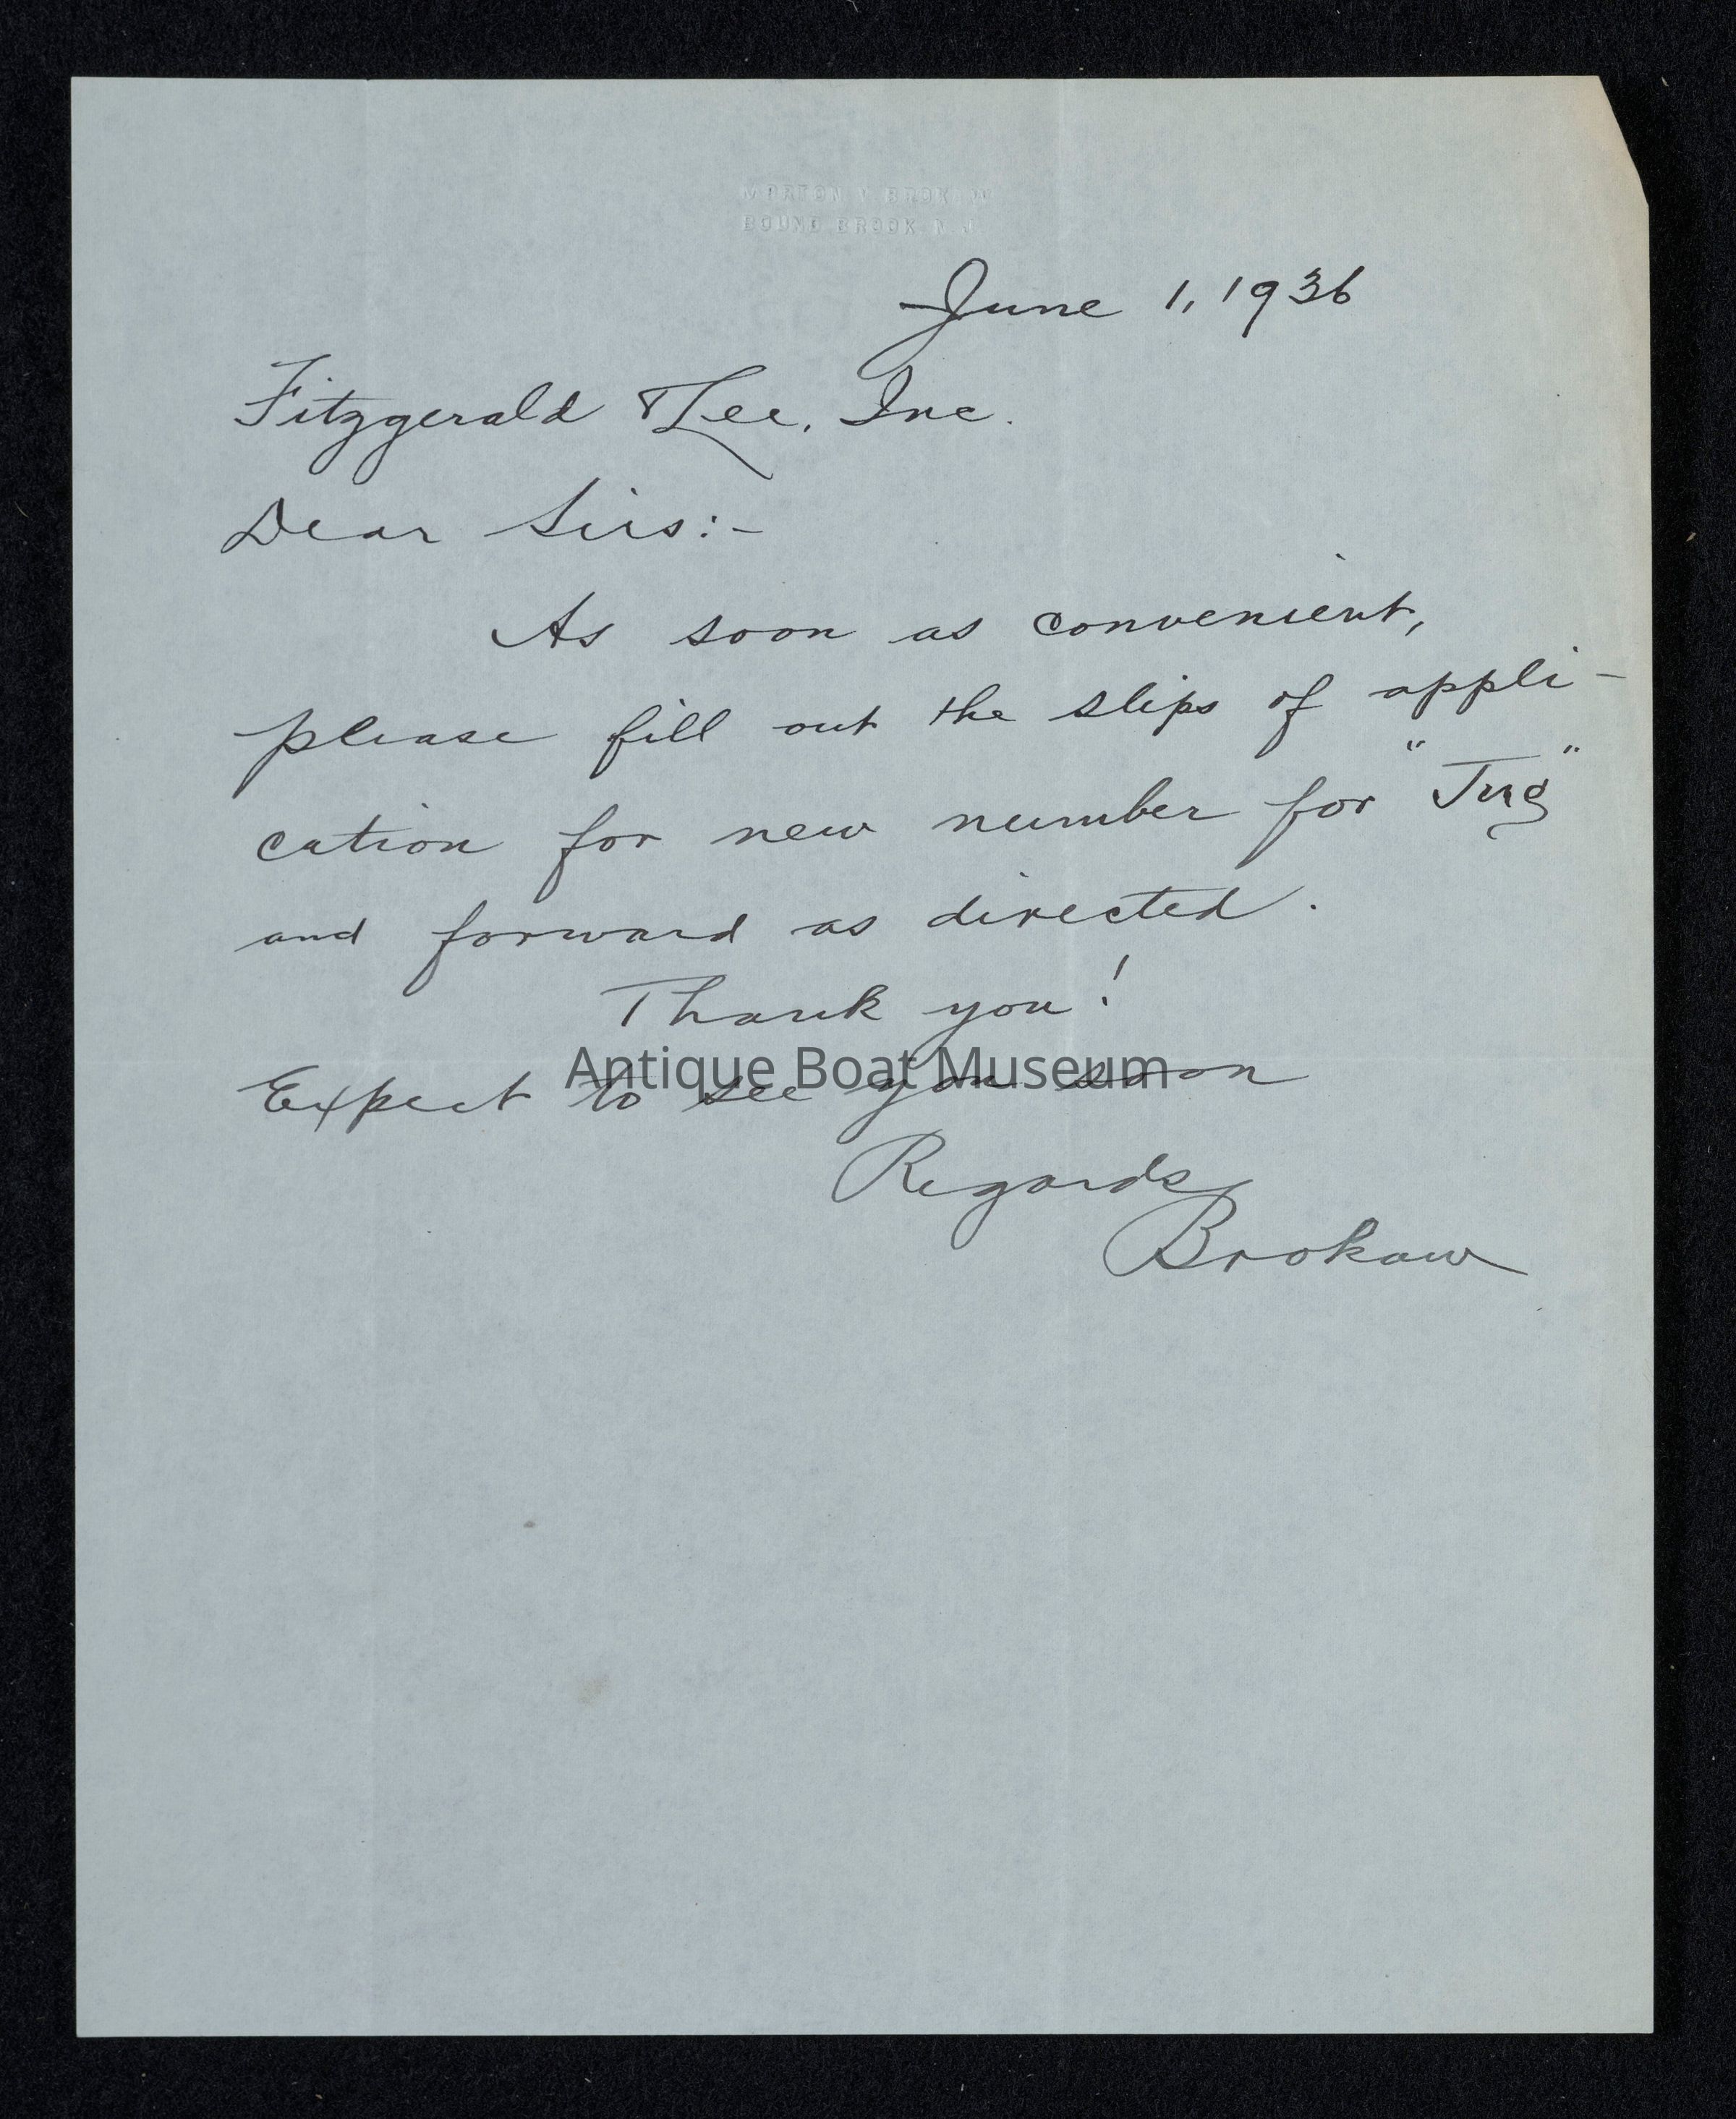 MORTON V BROKAW
BOUND BROOK N. J.
June 1, 1936
Fitzgerald & Lee, Inc.
Dear Sirs:-
As soon as convenient,
please fill out the slips of appli-
cation for new number for "Jug"
and forward as directed.
Thank you!
Antique Boat Museum
Expect to see you soon
Regards
Brokaw